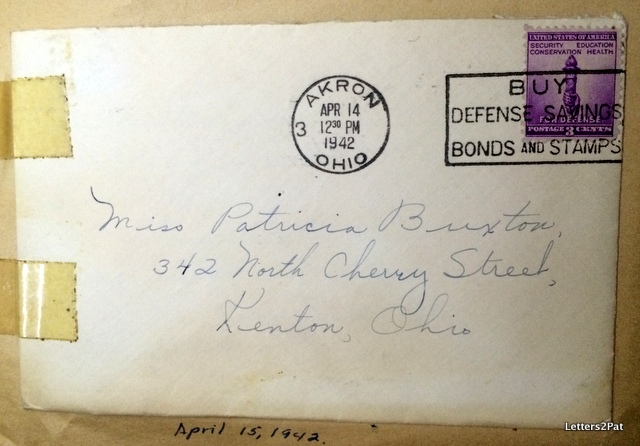 UNITED STATES OF AMERICA
SECURITY EDUCATION
CONSERVATION HEALTH
FOR DEFENSE
POSTAGE 3 CENTS
AKRON
APR 14
12 30 PM
1942
OHIO
3
BUY
DEFENSE SAVINGS
BONDS AND STAMPS
Miss Patricia Buxton,
342 North Cherry Street,
Kenton, Ohio
April 15, 1942.
Letters2Pat